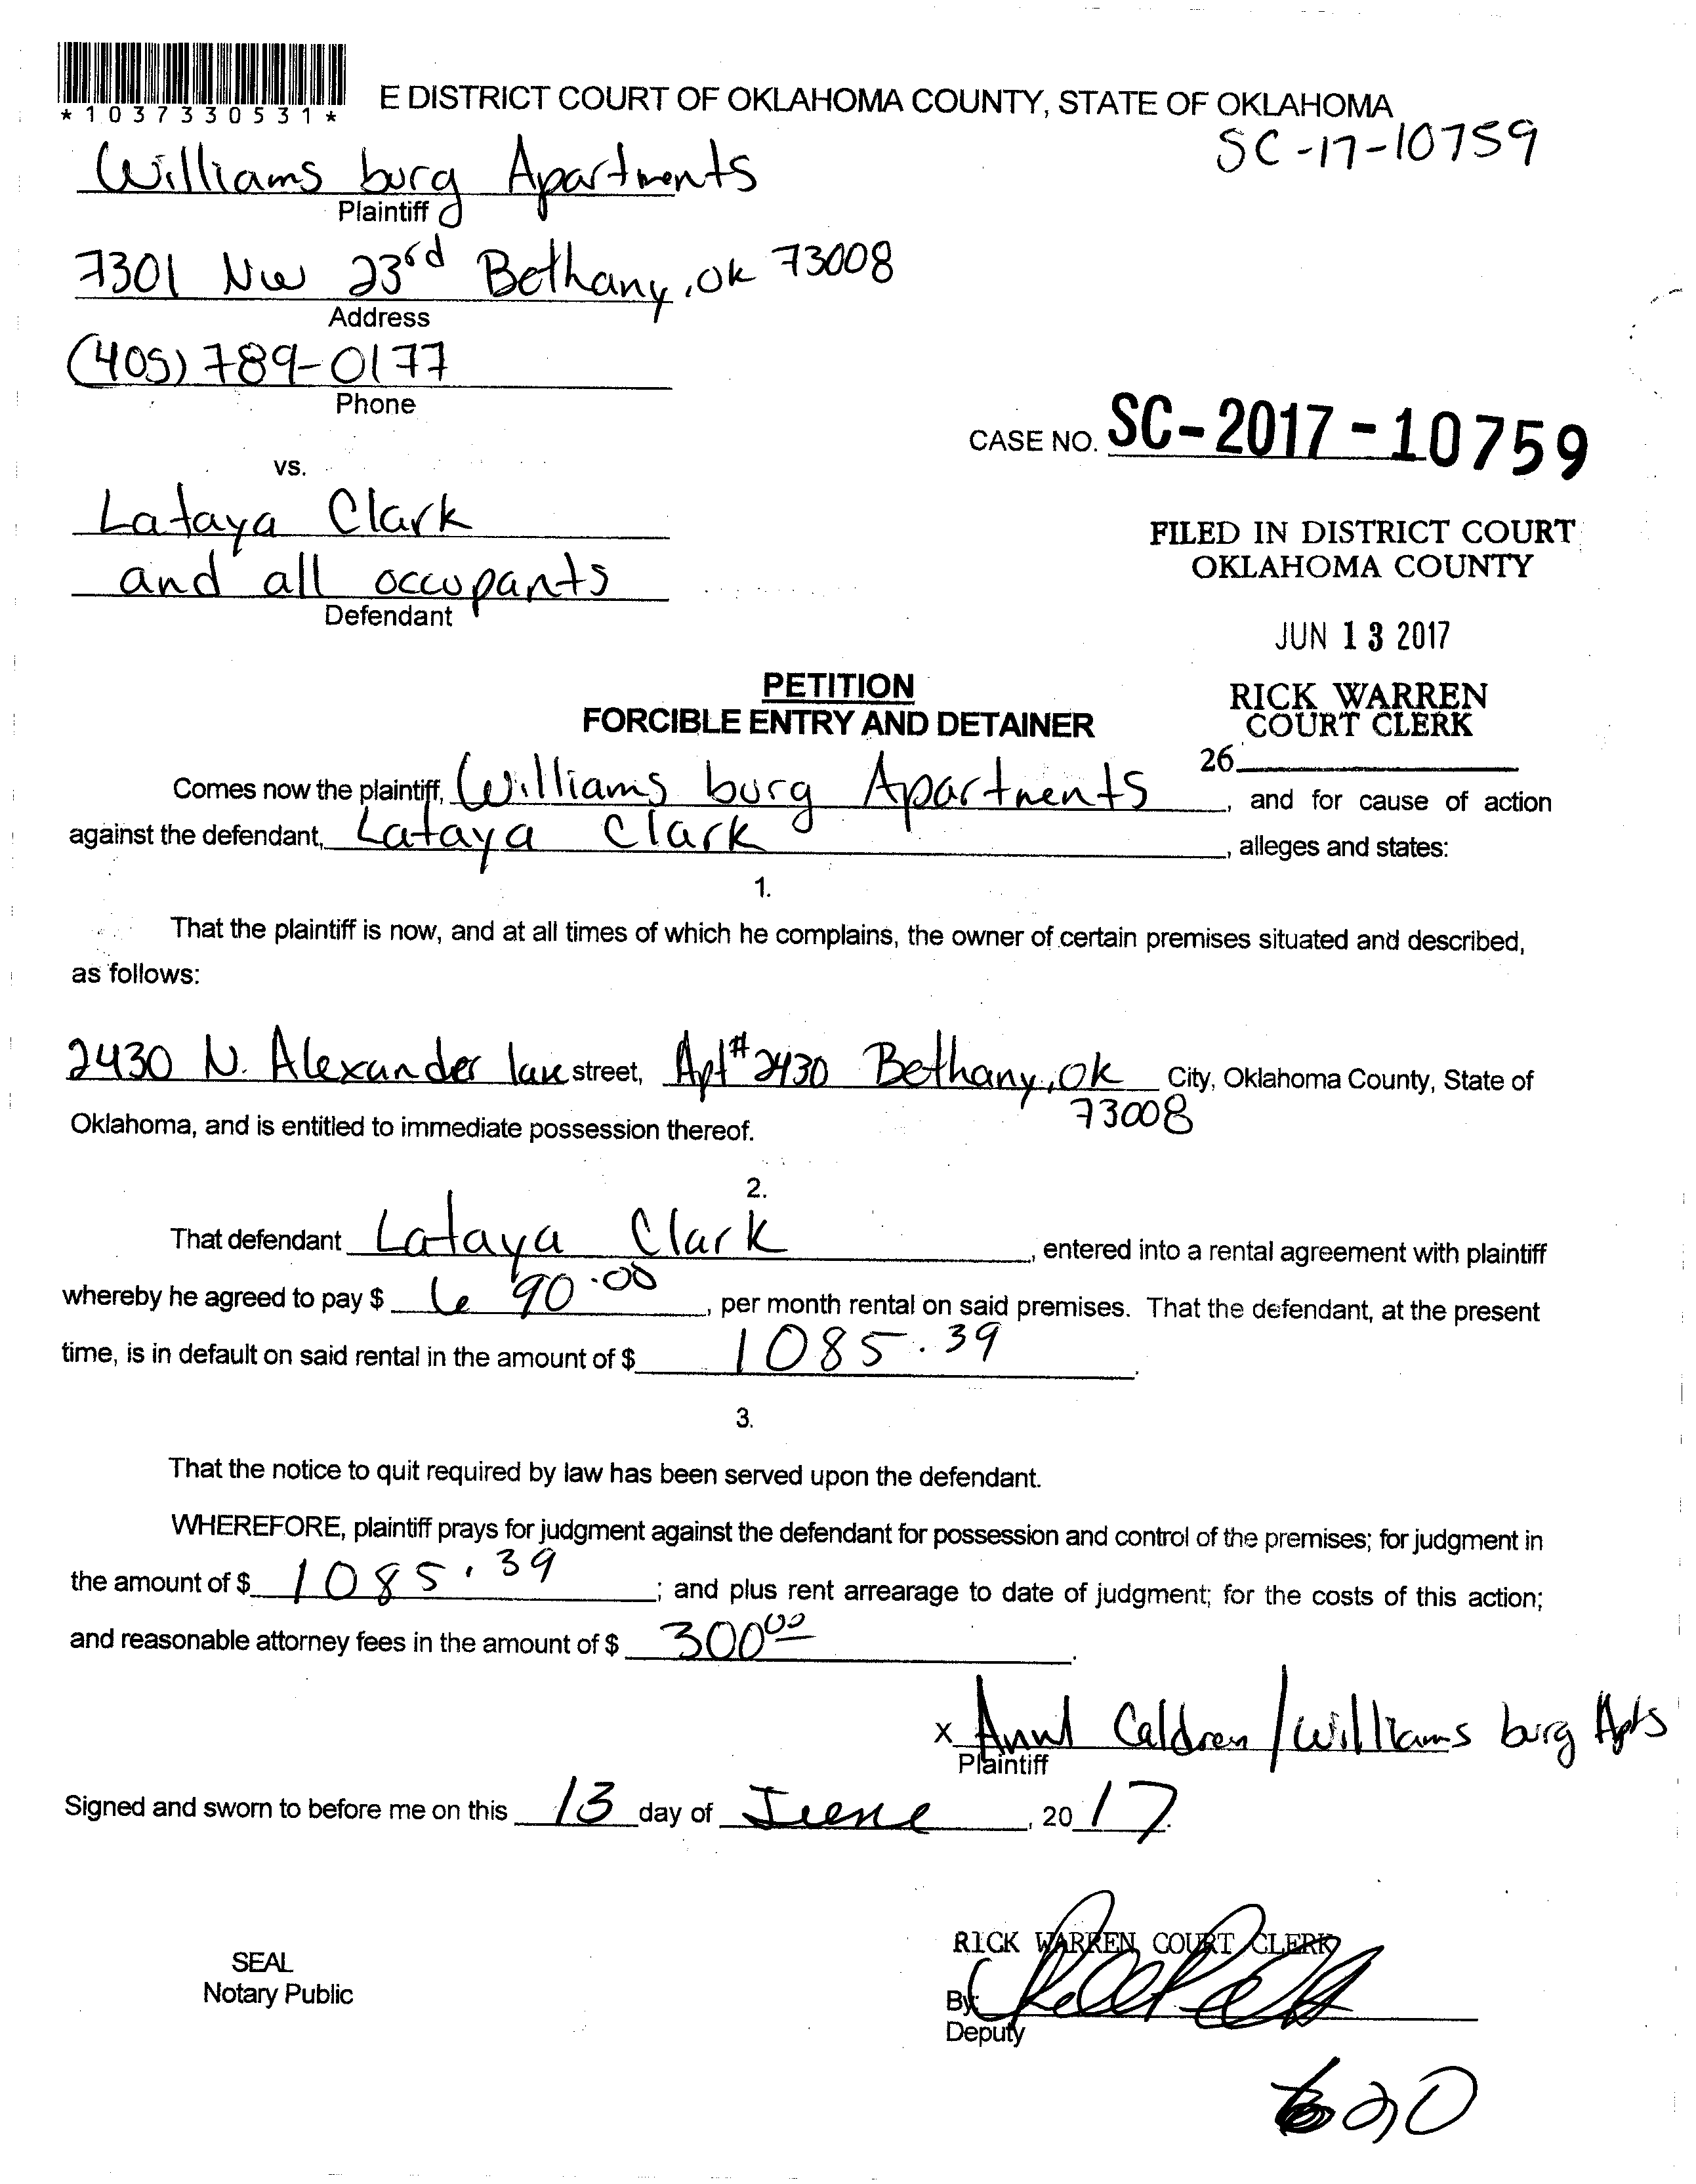 *1037330531*
E DISTRICT COURT OF OKLAHOMA COUNTY, STATE OF OKLAHOMA
SC-17-10759
Williams burg Apartments
Plaintiff
7301 NW 23rd Bethany, OK 73008
Address
(405) 789-0177
Phone
CASE NO. SC-2017-10759
vs.
Lataya Clark
and all occupants
Defendant
FILED IN DISTRICT COURT
OKLAHOMA COUNTY
JUN 13 2017
RICK WARREN
COURT CLERK
26
PETITION
FORCIBLE ENTRY AND DETAINER
Comes now the plaintiff, Williams burg Apartments, and for cause of action
against the defendant, Lataya Clark, alleges and states:
1.
That the plaintiff is now, and at all times of which he complains, the owner of certain premises situated and described,
as follows:
2430 N. Alexander lane street, Apt# 2430 Bethany, OK City, Oklahoma County, State of
73008
Oklahoma, and is entitled to immediate possession thereof.
2.
That defendant Lataya Clark, entered into a rental agreement with plaintiff
whereby he agreed to pay $ 690.00, per month rental on said premises. That the defendant, at the present
time, is in default on said rental in the amount of $ 1085.39.
3.
That the notice to quit required by law has been served upon the defendant.
WHEREFORE, plaintiff prays for judgment against the defendant for possession and control of the premises; for judgment in
the amount of $ 1085.39; and plus rent arrearage to date of judgment; for the costs of this action;
and reasonable attorney fees in the amount of $ 300.00.
x / Williams burg Apts
Plaintiff
Signed and sworn to before me on this 13 day of June, 2017.
SEAL
Notary Public
RICK WARREN COURT CLERK
By:
Deputy